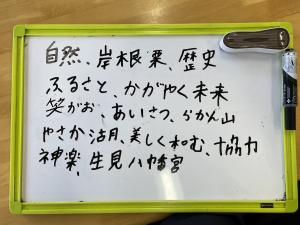 自然、岸根栗、歴史
ふるさと、かがやく未来
笑がお、あいさつ、らかん山
やさか活用、美しく和む、協力
神楽、生見八幡宮